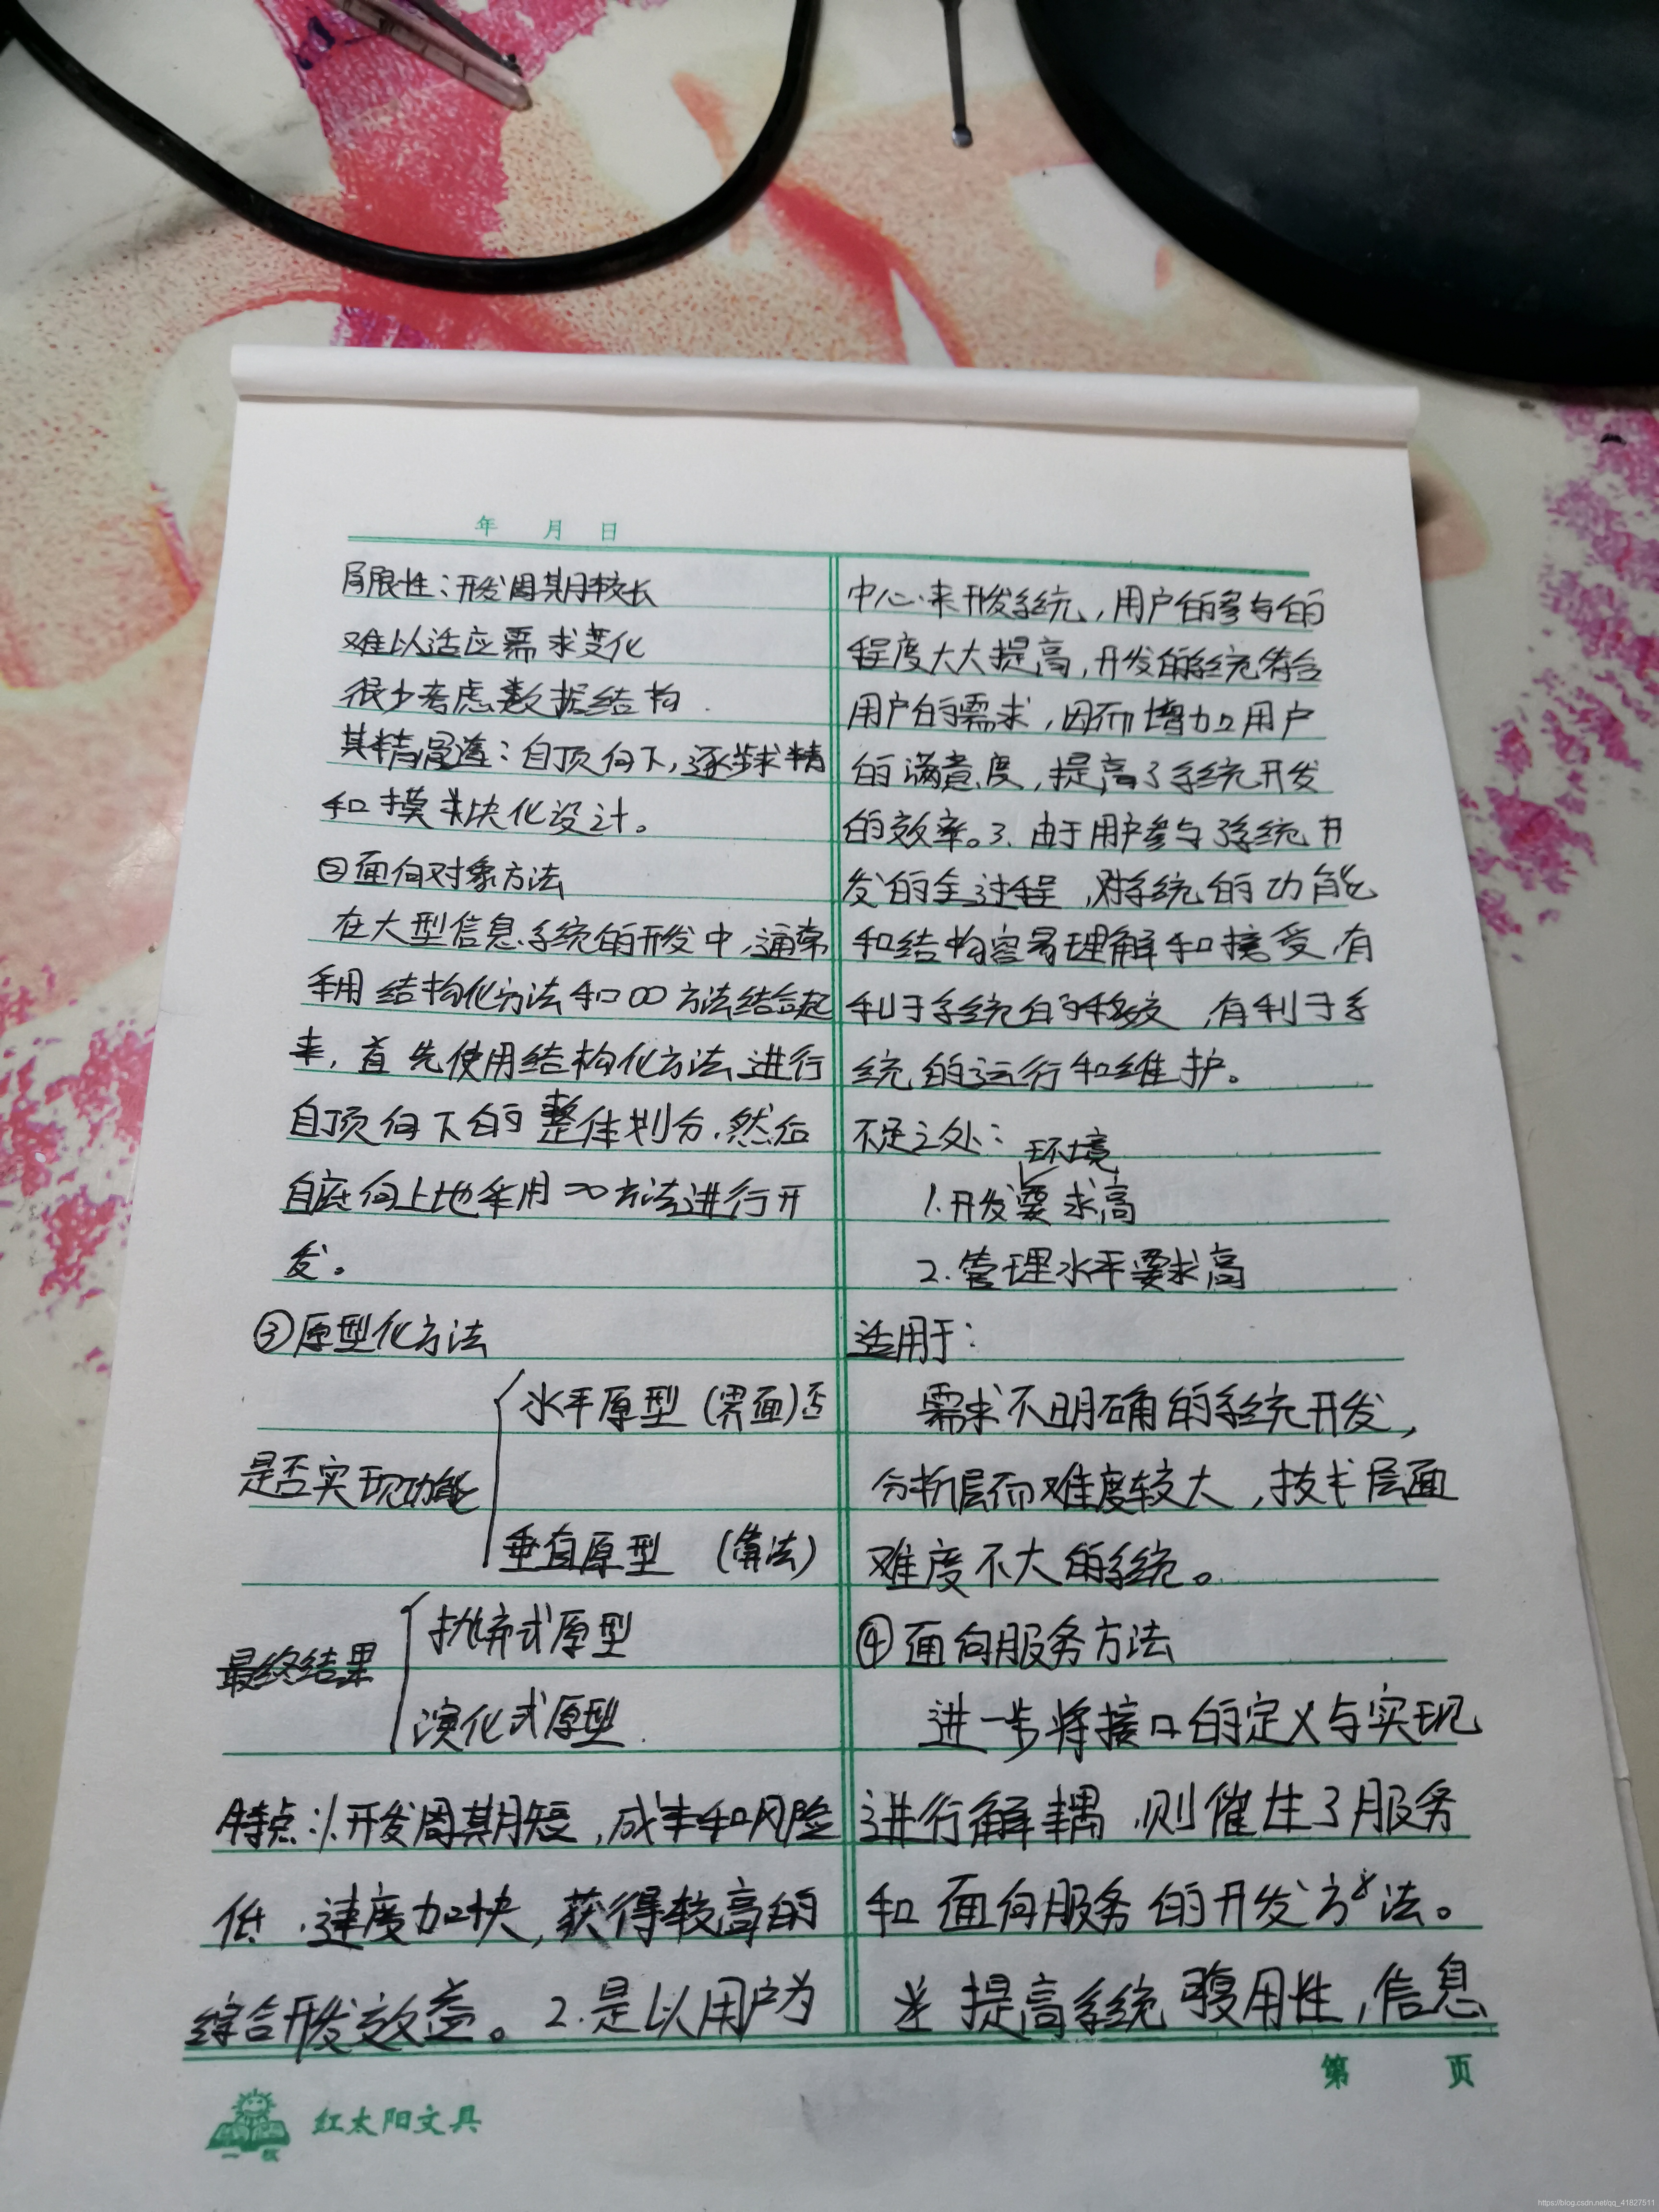 年 月 日
局限性：开发周期较长
难以适应需求变化
很少考虑数据结构.
其精髓：自顶向下，逐步求精
和模块化设计。
②面向对象方法
在大型信息系统的开发中，通常
采用结构化方法和OO方法结合起
来，首先使用结构化方法进行
自顶向下的整体划分，然后
自底向上地采用OO方法进行开
发。
③原型化方法
水平原型（界面）否
是否实现功能
垂直原型（算法）
抛弃式原型
最终结果
演化式原型.
特点：1.开发周期短，成本和风险
低，速度加快，获得较高的
综合开发效益。2.是以用户为
中心来开发系统，用户的参与的
程度大大提高，开发的系统符合
用户的需求，因而增加用户
的满意度，提高了系统开发
的效率。3.由于用户参与了系统开
发的全过程，对系统的功能
和结构容易理解和接受，有
利于系统的移交，有利于系
统的运行和维护。
不足之处：
环境
1.开发要求高
2.管理水平要求高
适用于：
需求不明确的系统开发，
分析层面难度较大，技术层面
难度不大的系统。
④面向服务方法
进一步将接口的定义与实现
进行解耦，则催生了服务
和面向服务的开发方法。
提高系统复用性，信息
第 页
红太阳文具
https://blog.csdn.net/qq_41827511